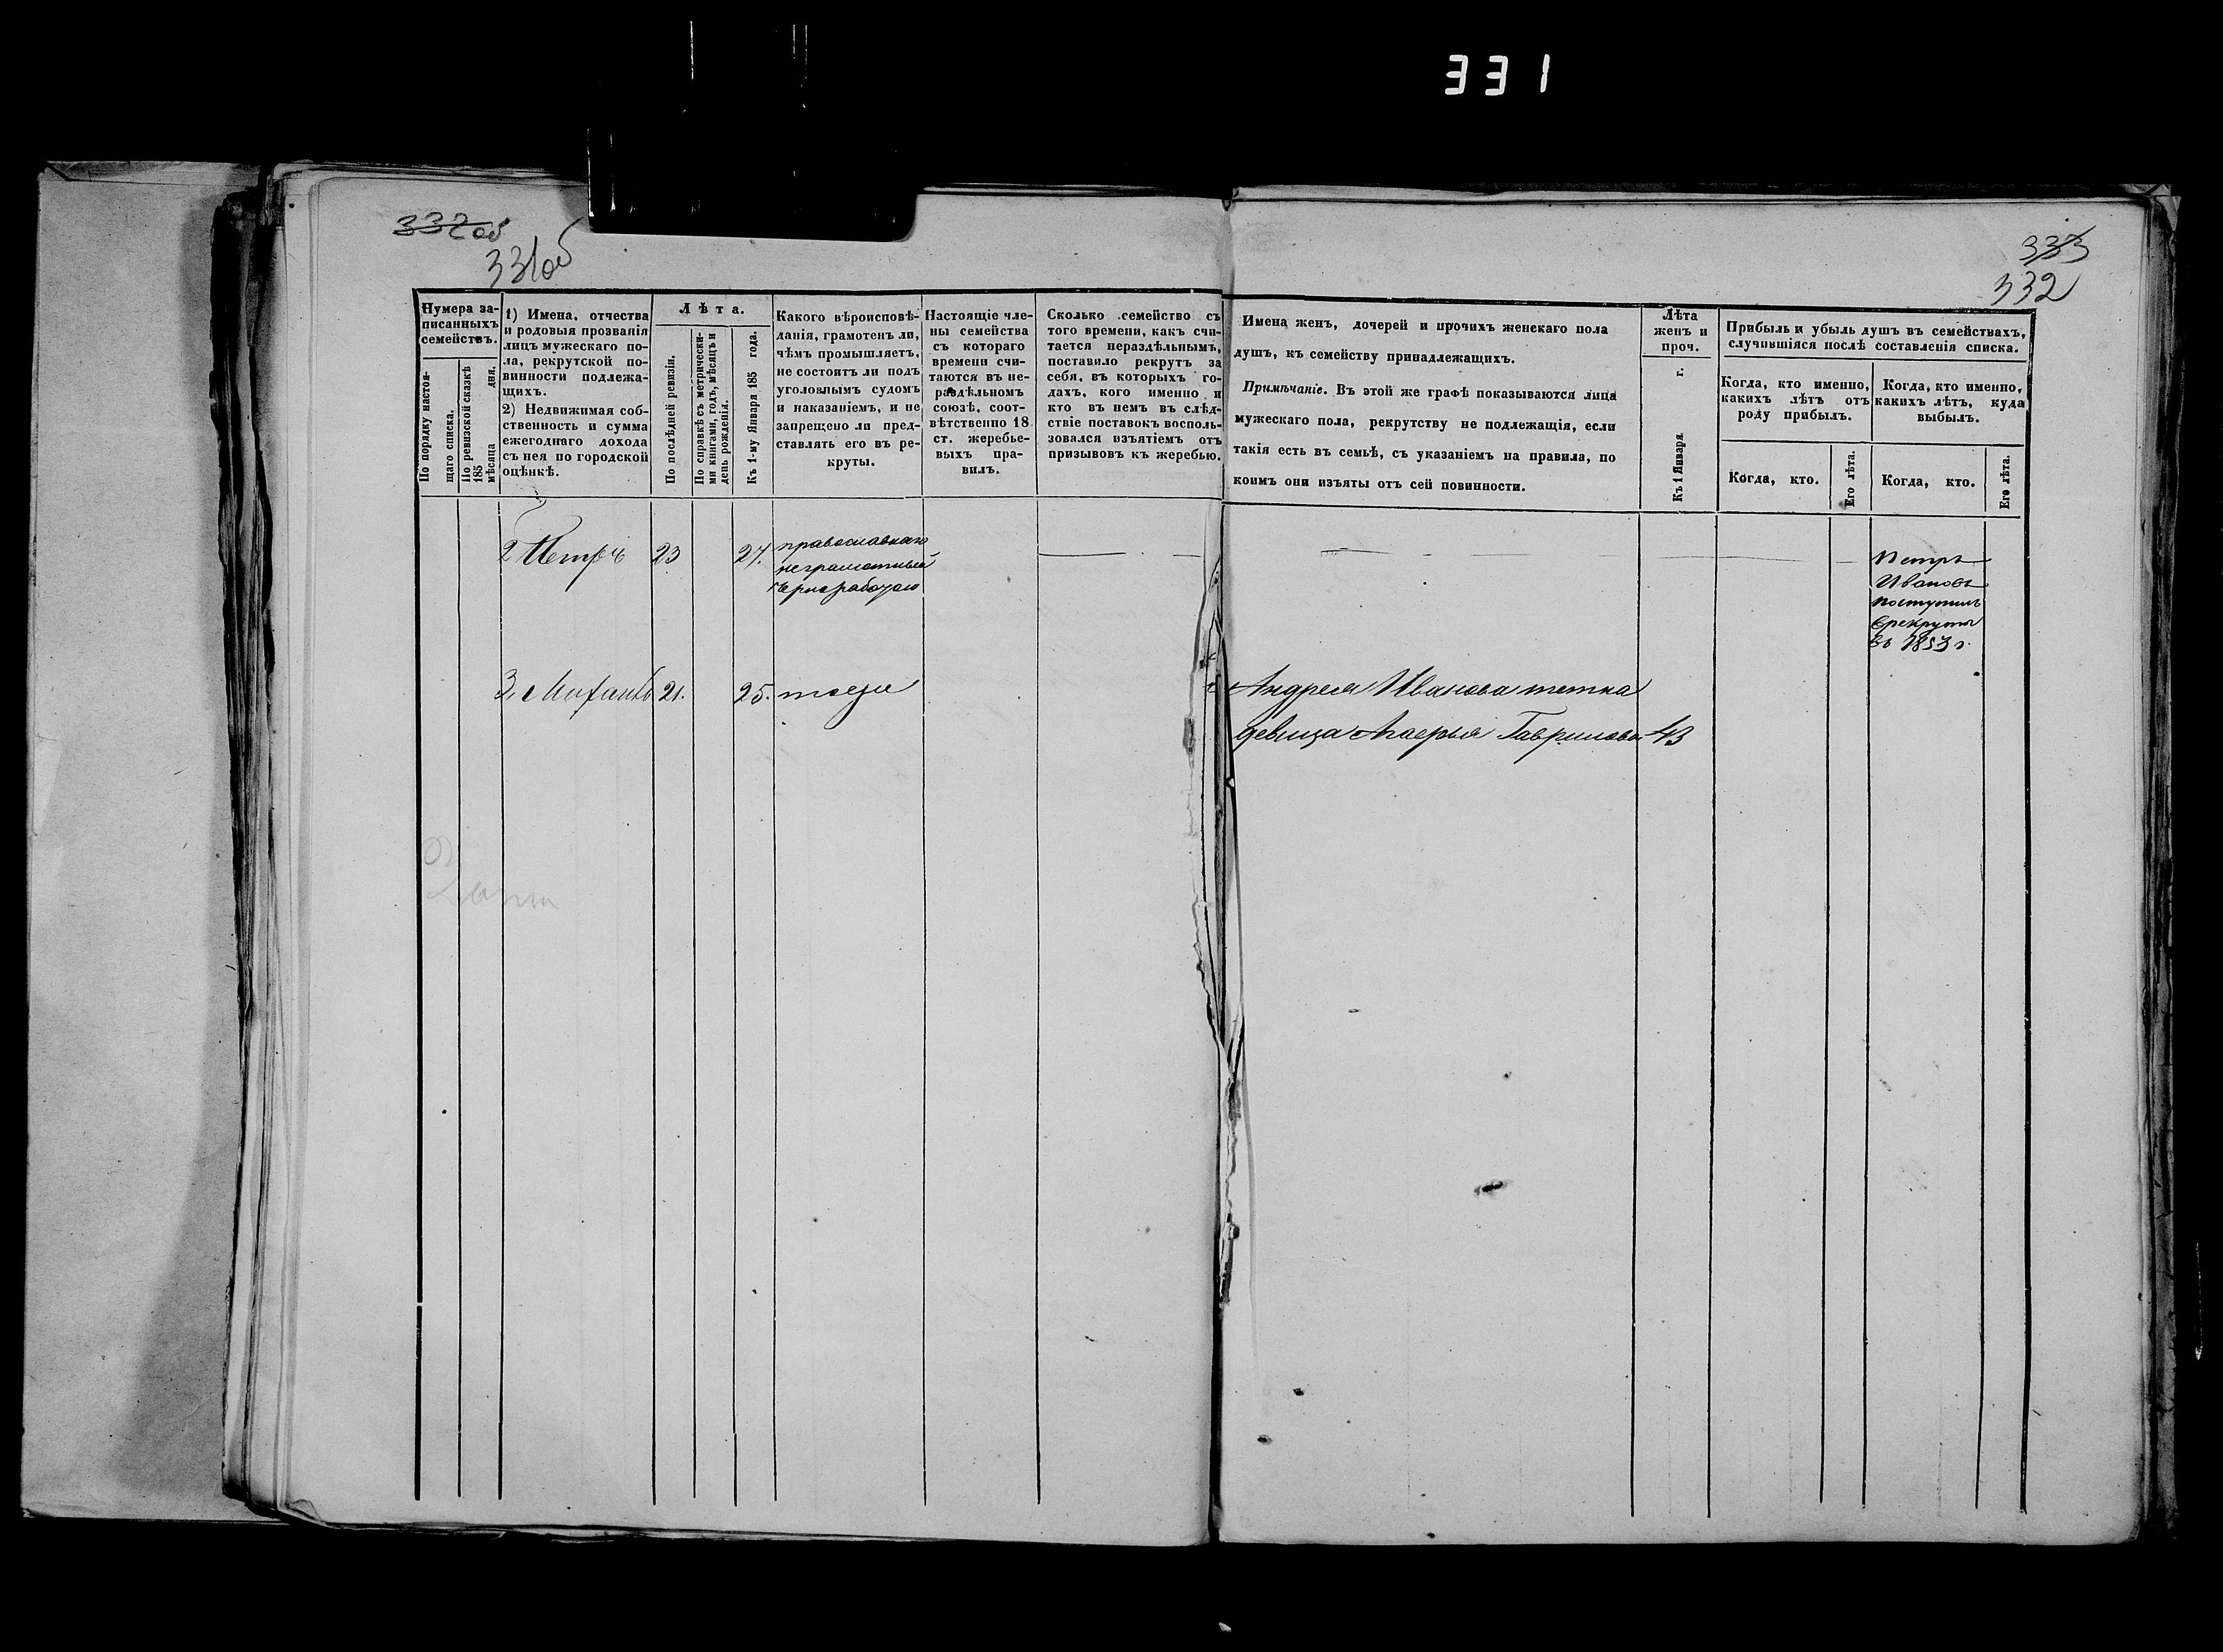 331
332об
331об
333
332
Нумера за-
писанныхъ
семействъ.
По порядку настоя-
щаго списка.
По ревизской сказкѣ
185 мѣсяца дня.
1) Имена, отчества
и родовыя прозванія
лицъ мужескаго по-
ла, рекрутской по-
винности подлежа-
щихъ.
2) Недвижимая соб-
ственность и сумма
ежегоднаго дохода
съ нея по городской
оцѣнкѣ.
Лѣта.
По послѣдней ревизіи.
По справкѣ съ метрически-
ми книгами, годъ, мѣсяцъ и
день рожденія.
Къ 1-му Января 185 года.
Какого вѣроисповѣ-
данія, грамотенъ ли,
чѣмъ промышляетъ,
не состоитъ ли подъ
уголовнымъ судомъ
и наказаніемъ, и не
запрещено ли пред-
ставлять его въ ре-
круты.
Настоящіе чле-
ны семейства
съ котораго
времени счи-
таются въ не-
раздѣльномъ
союзѣ, соот-
вѣтственно 18
ст. жеребье-
выхъ пра-
вилъ.
Сколько семейство съ
того времени, какъ счи-
тается нераздѣльнымъ,
поставило рекрутъ за
себя, въ которыхъ го-
дахъ, кого именно и
кто въ немъ въ слѣд-
ствіе поставокъ восполь-
зовался изъятіемъ отъ
призывовъ къ жеребью.
Имена женъ, дочерей и прочихъ женскаго пола
душъ, къ семейству принадлежащихъ.
Примѣчаніе. Въ этой же графѣ показываются лица
мужескаго пола, рекрутству не подлежащія, если
такія есть въ семьѣ, съ указаніемъ на правила, по
коимъ они изъяты отъ сей повинности.
Лѣта
женъ и
проч.
Къ 1 Января г.
Прибыль и убыль душъ въ семействахъ,
случившіяся послѣ составленія списка.
Когда, кто именно,
какихъ лѣтъ отъ
роду прибылъ.
Когда, кто.
Его лѣта.
Когда, кто именно,
какихъ лѣтъ, куда
выбылъ.
Когда, кто.
Его лѣта.
2 Петръ 23 27. православнаго
неграмотный
чернорабочаю
Петръ
Ивановъ
поступилъ
врекруты
въ 1853 г.
3. Михаилъ 21. 25. тоеже
Андрея Иванова тетка
девица Гаврилова 43